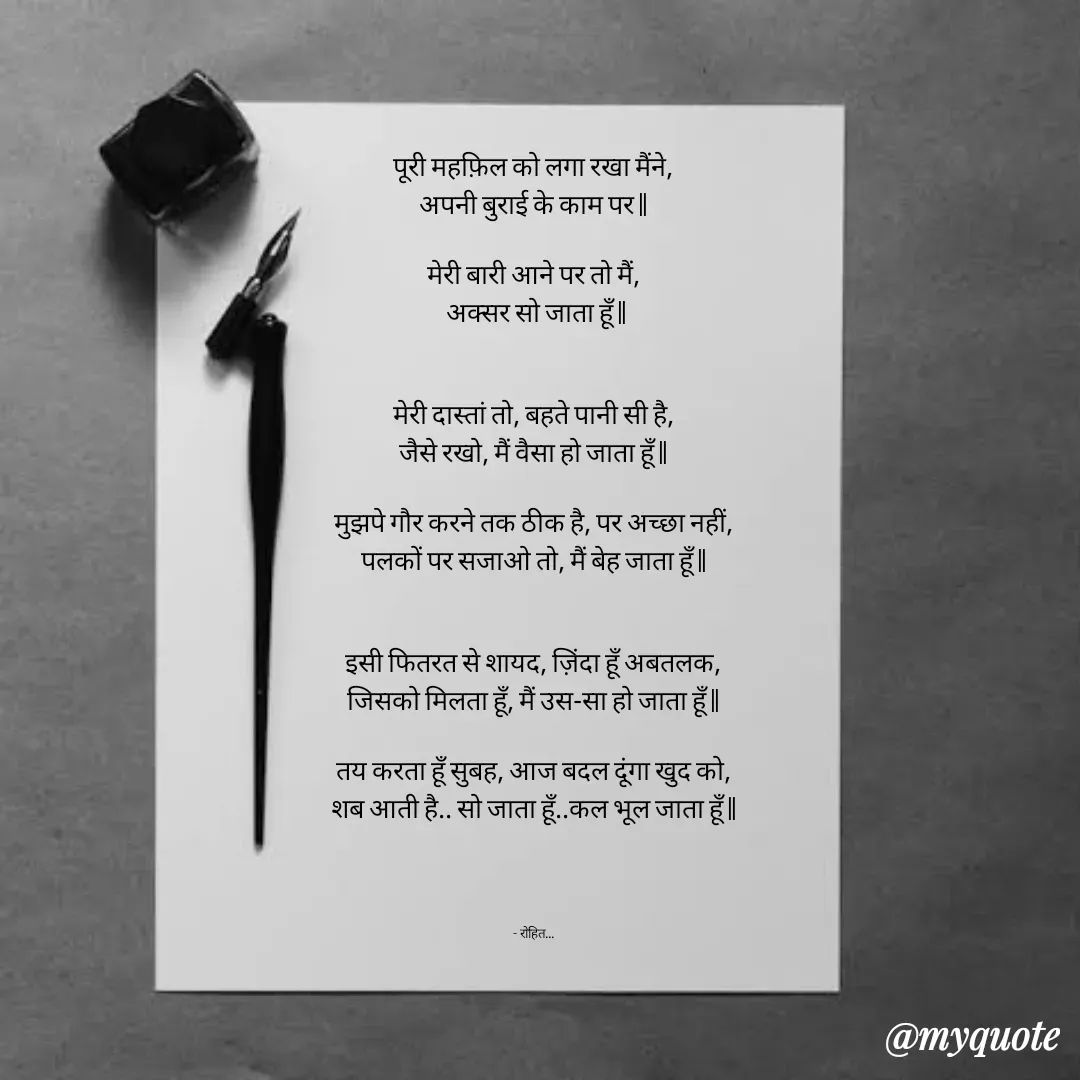 पूरी महफ़िल को लगा रखा मैंने,
अपनी बुराई के काम पर॥
मेरी बारी आने पर तो मैं,
अक्सर सो जाता हूँ॥
मेरी दास्तां तो, बहते पानी सी है,
जैसे रखो, मैं वैसा हो जाता हूँ॥
मुझपे गौर करने तक ठीक है, पर अच्छा नहीं,
पलकों पर सजाओ तो, मैं बेह जाता हूँ॥
इसी फितरत से शायद, ज़िंदा हूँ अबतलक,
जिसको मिलता हूँ, मैं उस-सा हो जाता हूँ॥
तय करता हूँ सुबह, आज बदल दूंगा खुद को,
शब आती है.. सो जाता हूँ..कल भूल जाता हूँ॥
- रोहित...
@myquote